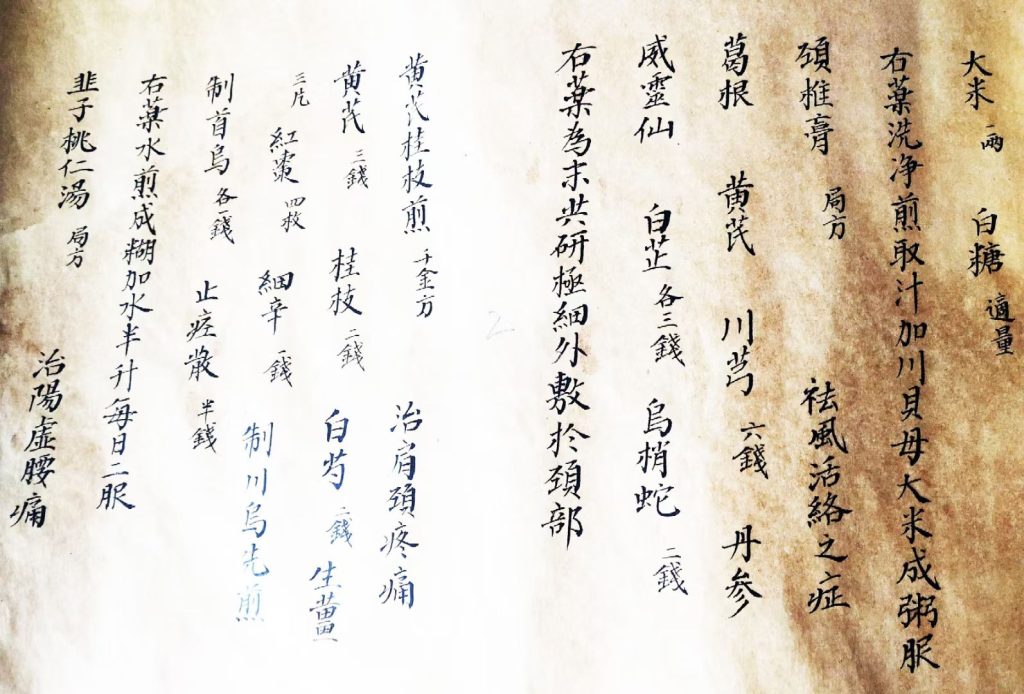 大米 一兩 白糖 適量
右薬洗净煎取汁加川貝母大米成粥服
頸椎膏 局方 祛風活絡之症
葛根 黄芪 川芎 六錢 丹参
威靈仙 白芷 各三錢 烏梢蛇 二錢
右薬為末共研極細外敷於頚部
黄芪桂枝煎 千金方 治肩頚疼痛
黄芪 三錢 桂枝 二錢 白芍 二錢 生薑
三片 紅棗 四枚 細辛 一錢 制川烏先煎
制首烏 各一錢 止痙散 半錢
右薬水煎成糊加水半升每日二服
韭子桃仁湯 局方 治陽虛腰痛